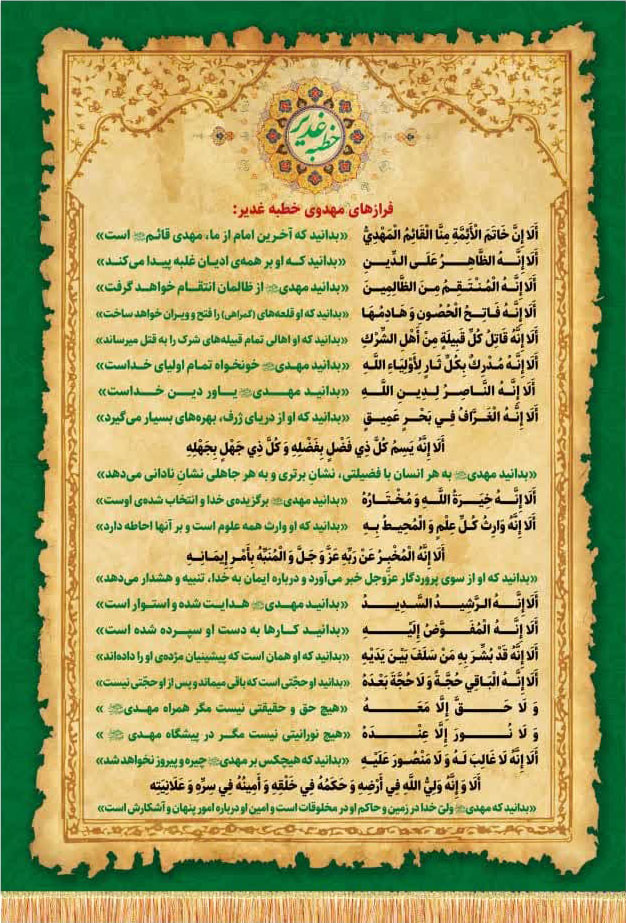 خطبه غدیر
فرازهای مهدوی خطبه غدیر:
أَلَا إِنَّ خَاتَمَ الْأَئِمَّةِ مِنَّا الْقَائِمُ الْمَهْدِيُّ «بدانید که آخرین امام از ما، مهدی قائم است»
أَلَا إِنَّهُ الظَّاهِرُ عَلَى الدِّينِ «بدانید که او بر همه‌ی ادیان غلبه پیدا می‌کند»
أَلَا إِنَّهُ الْمُنْتَقِمُ مِنَ الظَّالِمِينَ «بدانید مهدی از ظالمان انتقام خواهد گرفت»
أَلَا إِنَّهُ فَاتِحُ الْحُصُونِ وَ هَادِمُهَا «بدانید که او قلعه‌های (گمراهی) را فتح و ویران خواهد ساخت»
أَلَا إِنَّهُ قَاتِلُ كُلِّ قَبِيلَةٍ مِنْ أَهْلِ الشِّرْكِ «بدانید که او اهالی تمام قبیله‌های شرک را به قتل میرساند»
أَلَا إِنَّهُ مُدْرِكٌ بِكُلِّ ثَارٍ لِأَوْلِيَاءِ اللَّهِ «بدانید مهدی خونخواه تمام اولیای خداست»
أَلَا إِنَّهُ النَّاصِرُ لِدِينِ اللَّهِ «بدانید مهدی یاور دین خداست»
أَلَا إِنَّهُ الْغَرَّافُ فِي بَحْرٍ عَمِيقٍ «بدانید که او از دریای ژرف، بهره‌های بسیار می‌گیرد»
أَلَا إِنَّهُ يَسِمُ كُلَّ ذِي فَضْلٍ بِفَضْلِهِ وَ كُلَّ ذِي جَهْلٍ بِجَهْلِهِ
«بدانید مهدی به هر انسان با فضیلتی، نشان برتری و به هر جاهلی نشان نادانی می‌دهد»
أَلَا إِنَّهُ خِيَرَةُ اللَّهِ وَ مُخْتَارُهُ «بدانید مهدی برگزیده‌ی خدا و انتخاب شده‌ی اوست»
أَلَا إِنَّهُ وَارِثُ كُلِّ عِلْمٍ وَ الْمُحِيطُ بِهِ «بدانید که او وارث همه علوم است و بر آنها احاطه دارد»
أَلَا إِنَّهُ الْمُخْبِرُ عَنْ رَبِّهِ عَزَّ وَ جَلَّ وَ الْمُنَبِّهُ بِأَمْرِ إِيمَانِهِ
«بدانید که او از سوی پروردگار عزوجل خبر می‌آورد و درباره ایمان به خدا، تنبیه و هشدار می‌دهد»
أَلَا إِنَّهُ الرَّشِيدُ السَّدِيدُ «بدانید مهدی هدایت شده و استوار است»
أَلَا إِنَّهُ الْمُفَوَّضُ إِلَيْهِ «بدانید کارها به دست او سپرده شده است»
أَلَا إِنَّهُ قَدْ بُشِّرَ بِهِ مَنْ سَلَفَ بَيْنَ يَدَيْهِ «بدانید که او همان است که پیشینیان مژده‌ی او را داده‌اند»
أَلَا إِنَّهُ الْبَاقِي حُجَّةً وَ لَا حُجَّةَ بَعْدَهُ «بدانید او حجّتی است که باقی میماند و پس از او حجّتی نیست»
وَ لَا حَقَّ إِلَّا مَعَهُ «هیچ حق و حقیقتی نیست مگر همراه مهدی»
وَ لَا نُورَ إِلَّا عِنْدَهُ «هیچ نورانیتی نیست مگر در پیشگاه مهدی»
أَلَا إِنَّهُ لَا غَالِبَ لَهُ وَ لَا مَنْصُورَ عَلَيْهِ «بدانید که هیچکس بر مهدی چیره و پیروز نخواهد شد»
أَلَا وَ إِنَّهُ وَلِيُّ اللَّهِ فِي أَرْضِهِ وَ حَكَمُهُ فِي خَلْقِهِ وَ أَمِينُهُ فِي سِرِّهِ وَ عَلَانِيَتِهِ
«بدانید که مهدی ولیّ خدا در زمین و حاکم او در مخلوقات است و امین او درباره امور پنهان و آشکارش است»